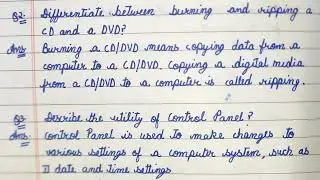 Q2. Differentiate between burning and ripping a
CD and a DVD?
Ans: Burning a CD/DVD means copying data from a
computer to a CD/DVD. Copying a digital media
from a CD/DVD to a computer is called ripping.
Q3. Describe the utility of Control Panel?
Ans. Control Panel is used to make changes to
various settings of a computer system, such as
I) date and time settings